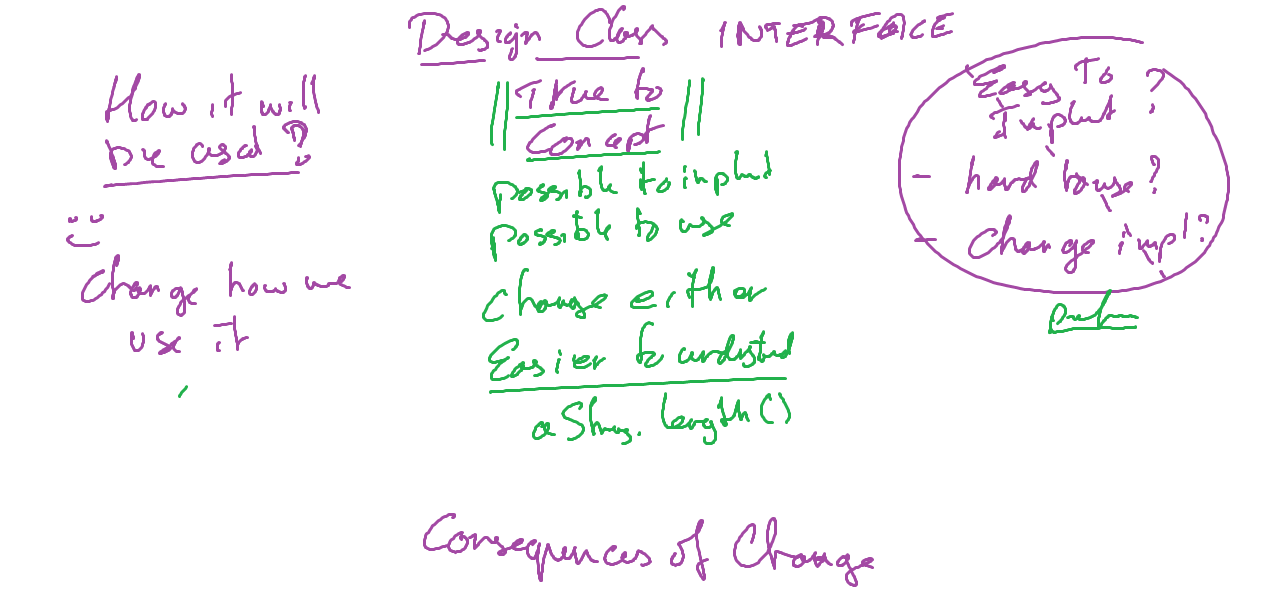 Design Class INTERFACE
How it will
be used?
Change how we
use it
True to
Concept
possible to implmt
possible to use
Change either
Easier to understand
aString.length()
Easy To
Implmt ?
- hard to use?
- Change impl?
Consequences of Change